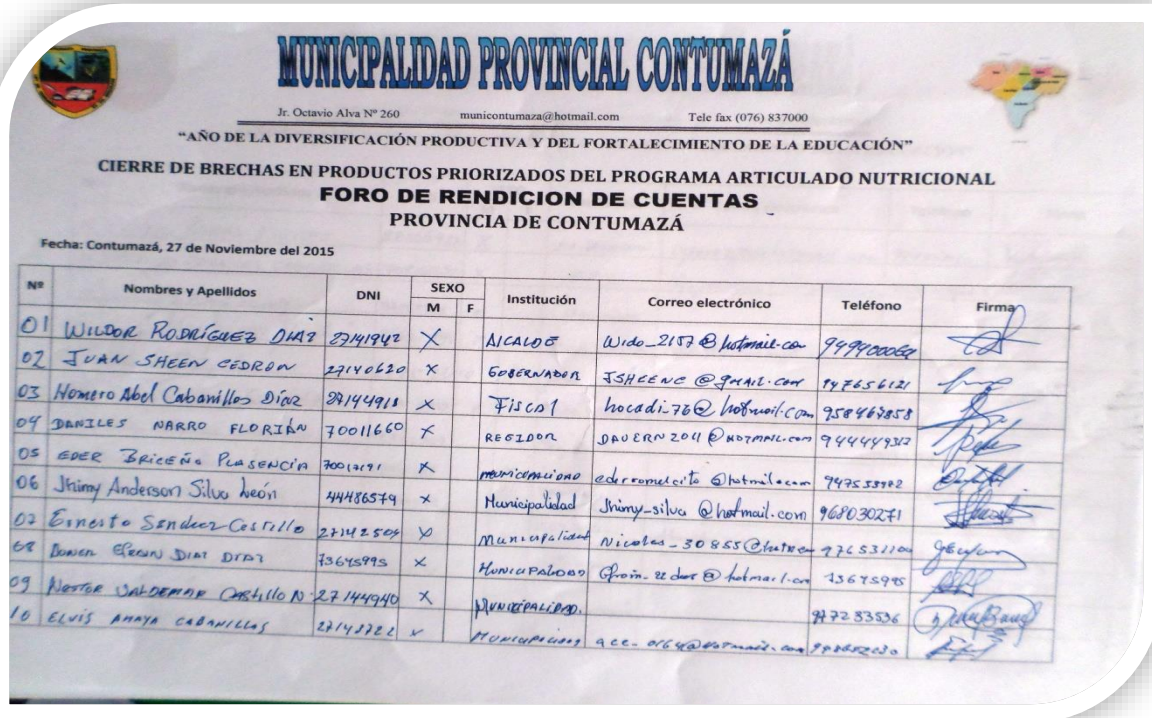 MUNICIPALIDAD PROVINCIAL CONTUMAZÁ
Jr. Octavio Alva Nº 260 municontumaza@hotmail.com Tele fax (076) 837000
“AÑO DE LA DIVERSIFICACIÓN PRODUCTIVA Y DEL FORTALECIMIENTO DE LA EDUCACIÓN”
CIERRE DE BRECHAS EN PRODUCTOS PRIORIZADOS DEL PROGRAMA ARTICULADO NUTRICIONAL
FORO DE RENDICION DE CUENTAS
PROVINCIA DE CONTUMAZÁ
Fecha: Contumazá, 27 de Noviembre del 2015
Nº Nombres y Apellidos DNI SEXO Institución Correo electrónico Teléfono Firma
M F
01 WILDOR RODRÍGUEZ DIAZ 27141942 X ALCALDE
02 JUAN SHEEN CEDRON 27140620 X GOBERNADOR JSHEENC@gmail.com 947656121
03 Homero Abel Cabanillas Díaz 27144918 X Fiscal hocadi_76@hotmail.com 958467858
04 DANILES NARRO FLORIÁN 70011660 X REGIDOR
05 EDER BRICEÑO PLASENCIA X MUNICIPALIDAD
06 Jhimy Anderson Silva León 44486579 X Municipalidad Jhimy_silva@hotmail.com 968030271
07 Ernesto Castillo 27142504 X Municipalidad
08 DIAZ DIAZ 73645995 X MUNICIPALIDAD
09 NESTOR VALDEMAR CASTILLO N. 27144940 X MUNICIPALIDAD. 977283536
10 ELVIS AMAYA CABANILLAS X MUNICIPALIDAD